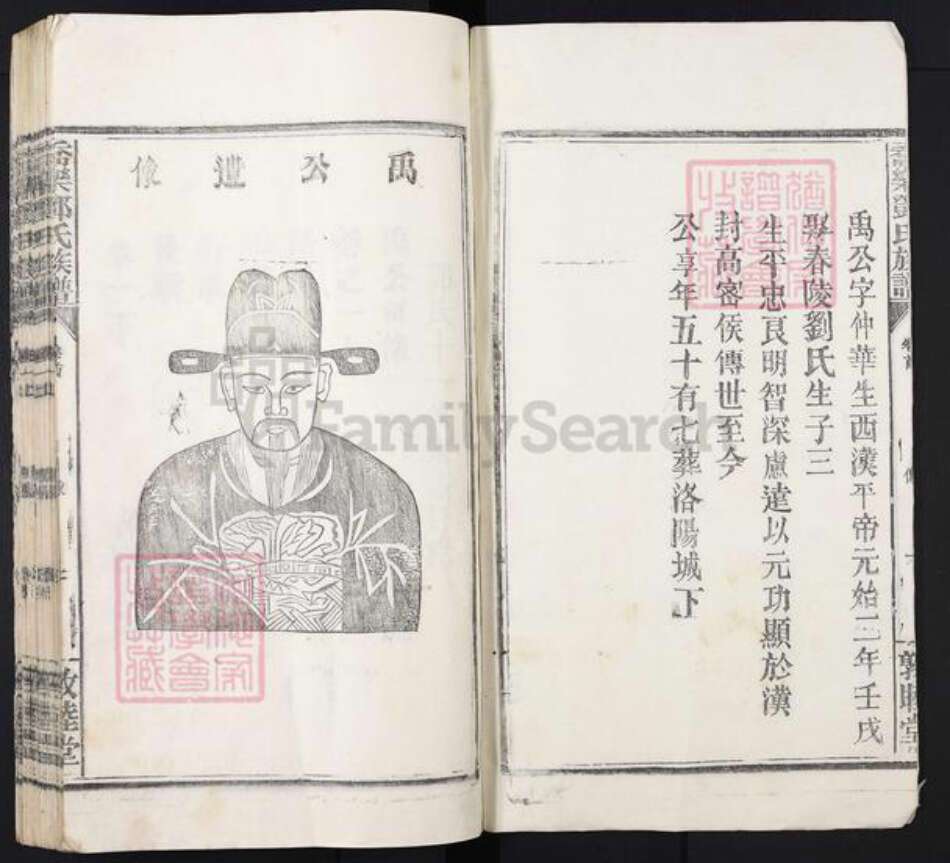 禹公字仲華生西漢平帝元始二年壬戌
娶春陵劉氏生子三
生平忠良明智深慮達以元功顯於漢
封高密侯傳世至今
公享年五十有七葬洛陽城下
禹公遺像
氏族譜
敦睦堂
FamilySearch